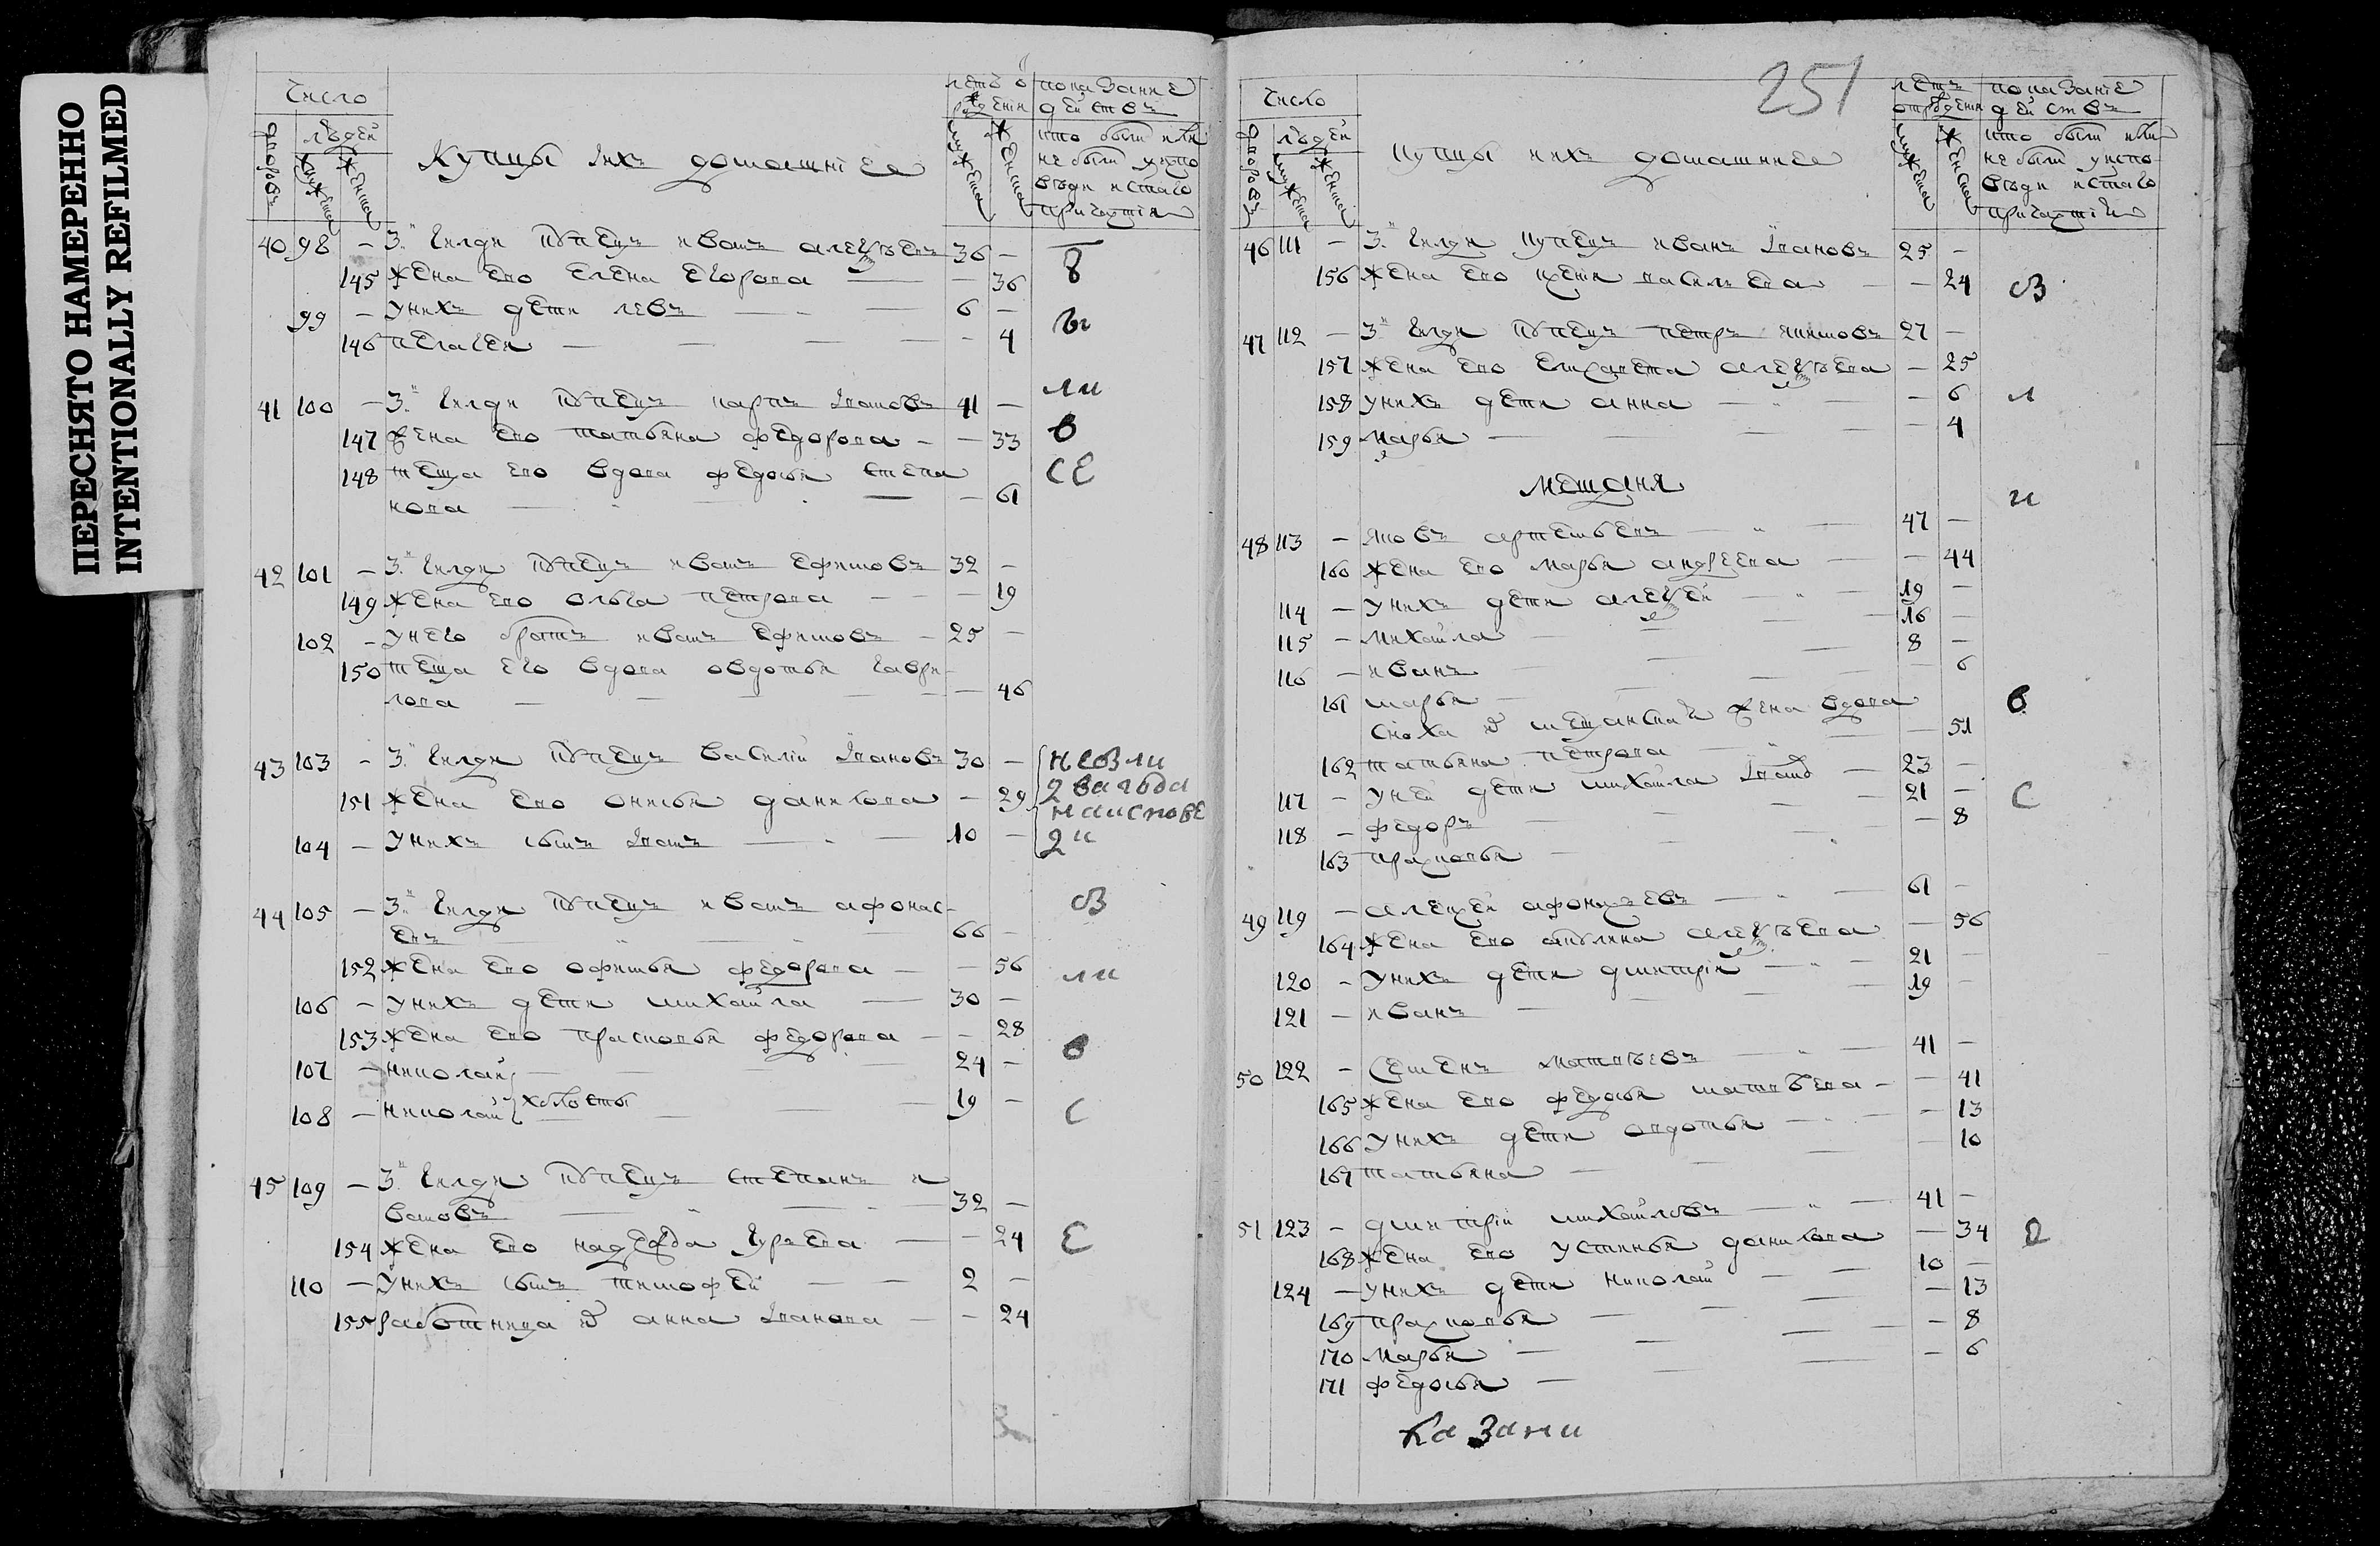 ПЕРЕСНЯТО НАМЕРЕННО
INTENTIONALLY REFILMED
Число
людей
Купцы и ихъ домашніе
показание
действъ
кто были или
не были у испо
веди и стаго
причастия
40 98 — 3 Гилди купецъ иванъ алексеевъ 36 —
145 жена ево Елена Егорова — 36
99 — у нихъ дети левъ 6 —
146 пелагея — 4
бы
ли
41 100 — 3 Гилди купецъ карпъ ивановъ 41 —
147 жена ево татьяна федорова — 33
148 теща ево вдова федосья степа
нова — 61
в
се
42 101 — 3 Гилди купецъ иванъ Ефимовъ 32 —
149 жена ево ольга петрова — 19
102 — у него братъ иванъ Ефимовъ 25 —
150 теща его вдова овдотья гаври
лова — 46
43 103 — 3 Гилди купецъ василий ивановъ 30 —
151 жена ево данилова — 29
104 — у нихъ сынъ иванъ 10 —
44 105 — 3 Гилди купецъ иванъ афонас
евъ 66 —
152 жена ево офимья федорова — 56
106 — у нихъ дети михайла 30 —
153 жена ево прасковья федорова — 28
107 — николай 24 —
108 — николай холосты 19 —
ли
в
с
45 109 — 3 Гилди купецъ степанъ и
вановъ 32 —
154 жена ево надежда — 24
110 — у нихъ сынъ тимофей 2 —
155 работница анна иванова — 24
Е
251
Число
людей
купцы и ихъ домашние
показание
действъ
кто были или
не были у испо
веди и стаго
причастия
46 111 — 3 Гилди купецъ иванъ ивановъ 25 —
156 жена ево васильева — 24
47 112 — 3 Гилди купецъ петръ 27 —
157 жена ево Елизавета алексеева — 25
158 у нихъ дети анна — 6
159 марья — 4
л
и
Мещаня
48 113 — яковъ артемьевъ 47 —
160 жена ево марья андреева — 44
114 — у нихъ дети алексей 19 —
115 — михайла 16 —
116 — иванъ 8 —
161 марья — 6
сноха жена вдова
162 татьяна петрова — 51
117 — у ней дети михайла 23 —
118 — федоръ 21 —
163 прасковья — 8
в
с
49 119 — алексей афонасьевъ 61 —
164 жена ево акулина алексеева — 56
120 — у нихъ дети дмитрий 21 —
121 — иванъ 19 —
50 122 — семенъ матвеевъ 41 —
165 жена ево федосья матвеева — 41
166 у нихъ дети овдотья — 13
167 татьяна — 10
51 123 — дмитрий михайловъ 41 —
168 жена ево устинья данилова — 34
124 — у нихъ дети николай 10 —
169 прасковья — 13
170 марья — 8
171 федосья — 6
Казани